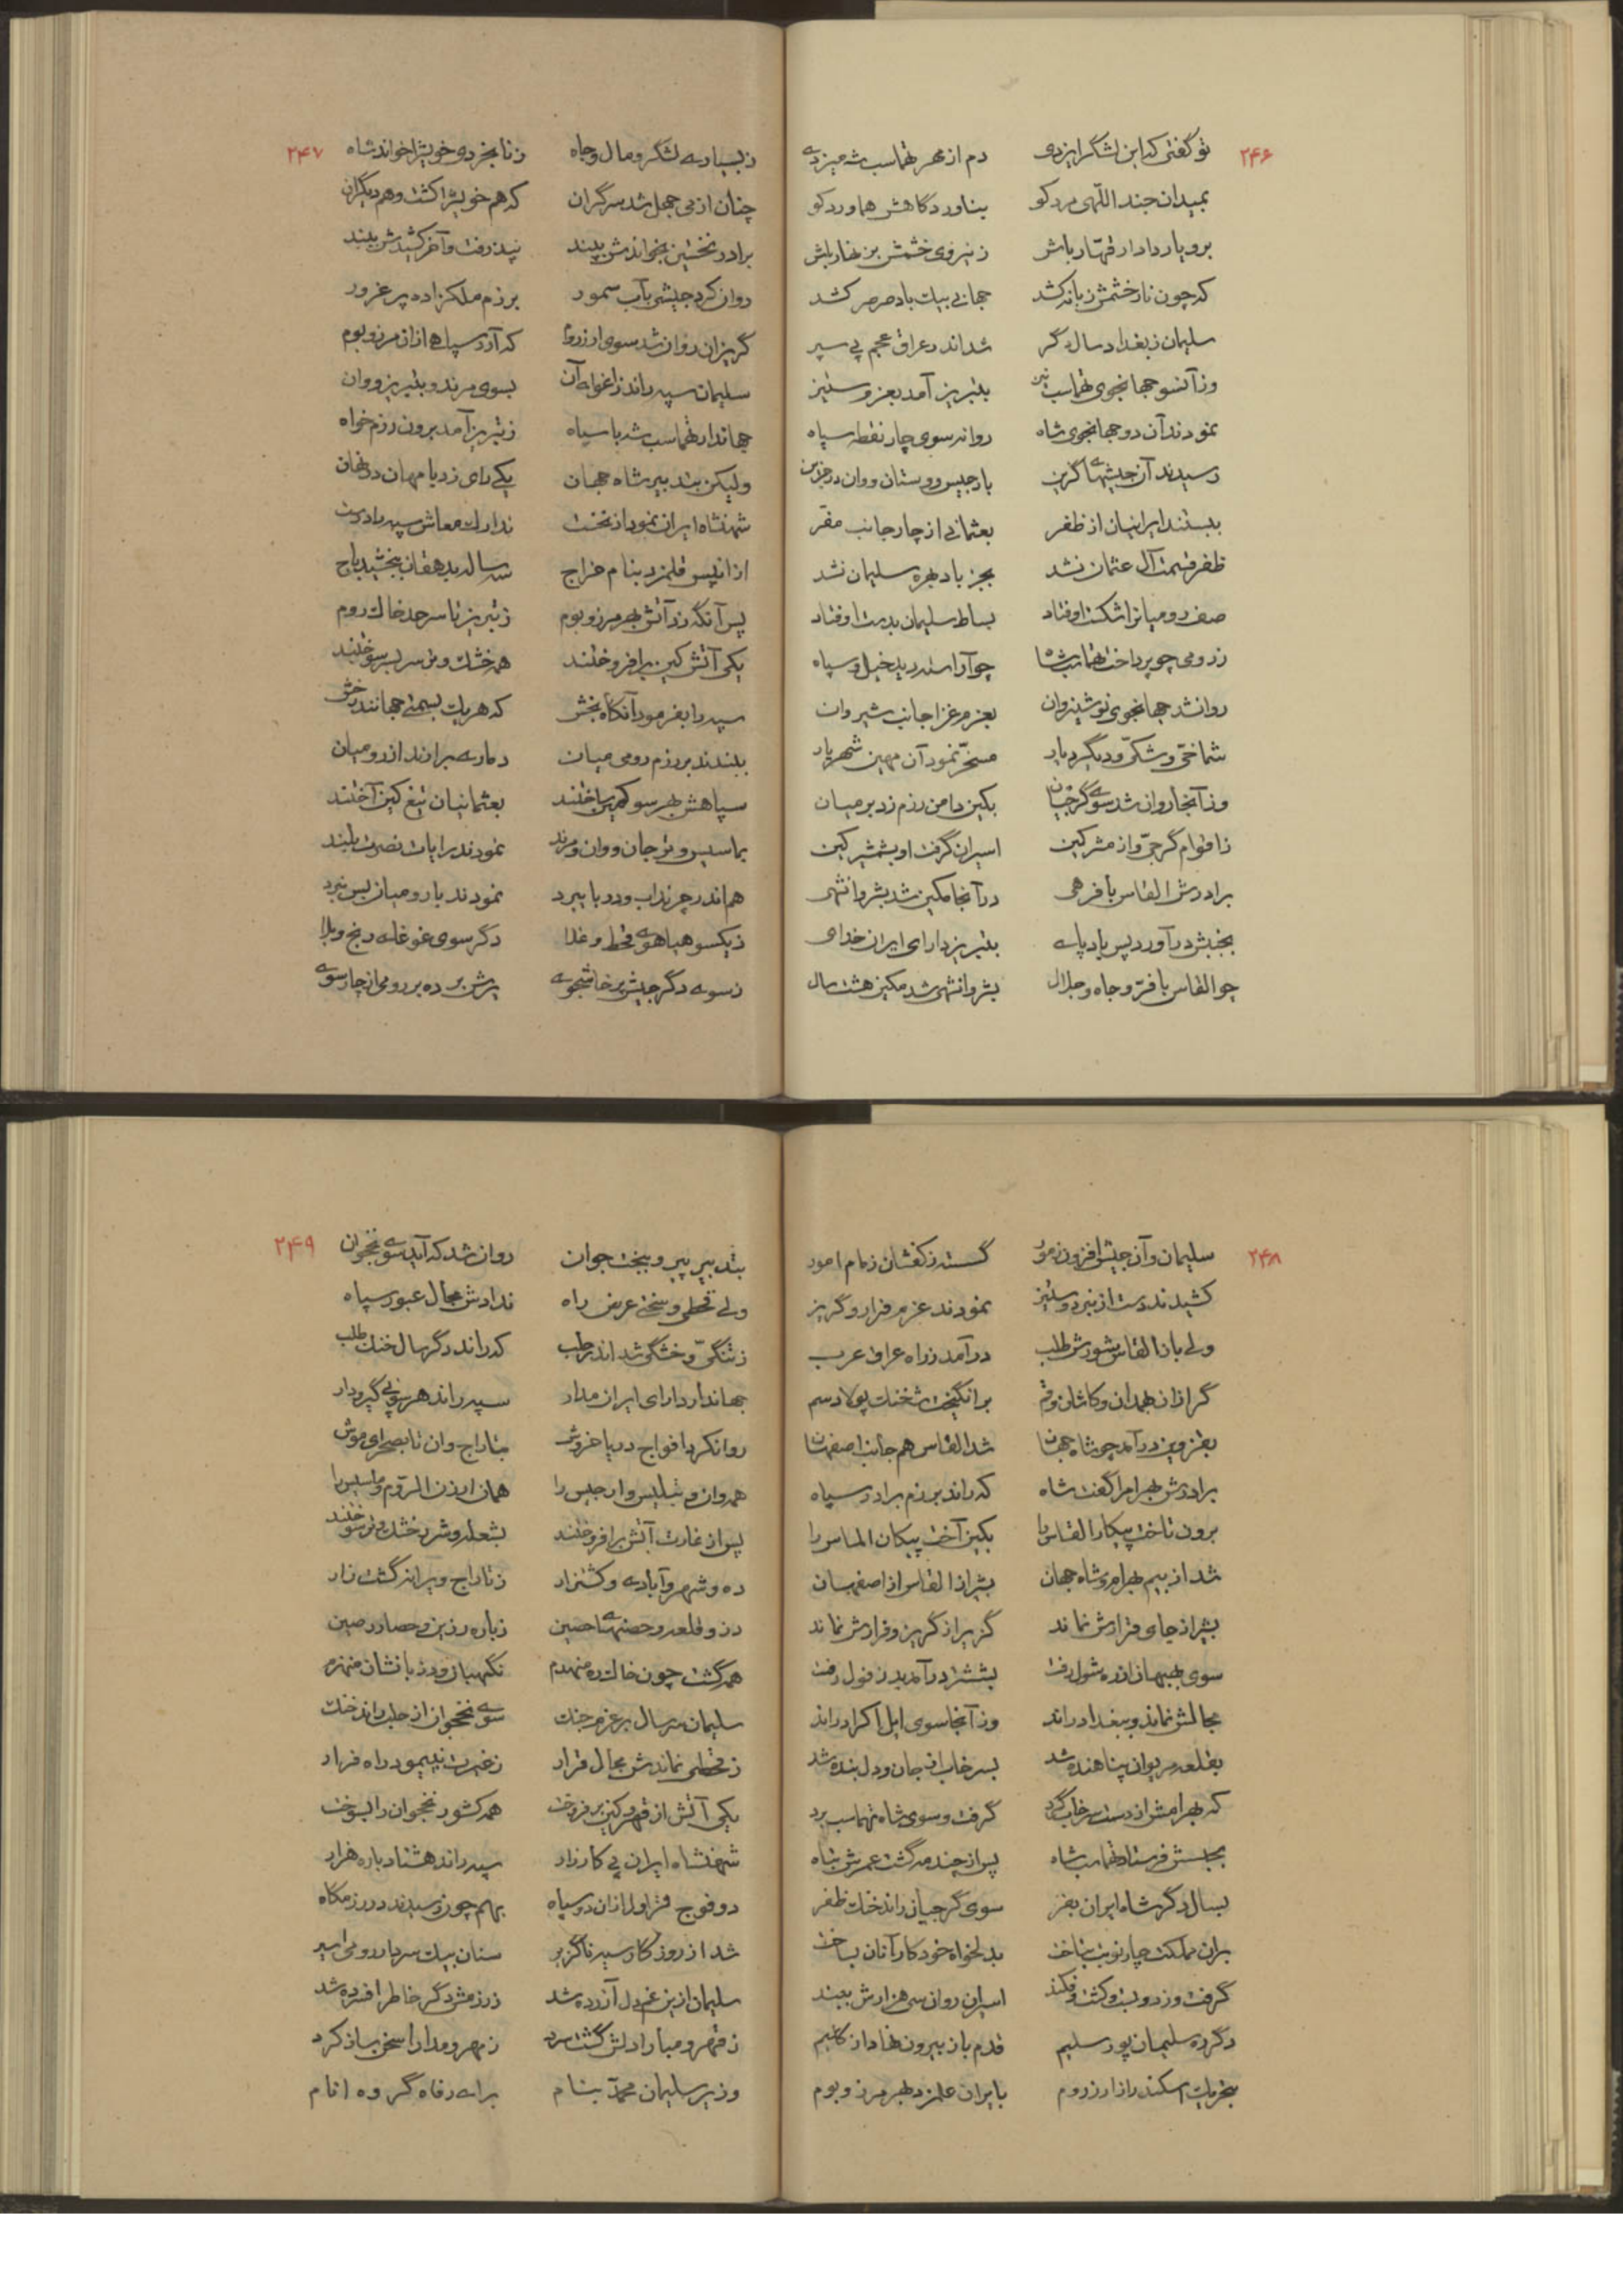 ۲۴۶
تو گفتی که این لشگر ایزدی دم از مهر طهماسب شه میزدی
بمیدان جند اللهی مرد کو بناوردگاهش هماورد کو
برو یار دادار قهار باش ز نیروی خشمش بزنهار باش
که چون نار خشمش زبانه کشد جهانی بیک باد صرصر کشد
سلیمان ز بغداد سال دگر شد اندر عراق عجم پی سپر
وز آنسو جهانجوی طهماسب نیز بتبریز آمد بعزم ستیز
نمودند آن دو جهانجوی شاه روانه سوی چار نقطه سپاه
رسیدند آن جیشهای گزین بارجیس و وستان و وان در
ببستند ایرانیان از ظفر بعثمانی از چار جانب مقر
ظفر قسمت آل عثمان نشد بجز باد بهره سلیمان نشد
صف رومیانرا شکست اوفتاد بساط سلیمان بدست اوفتاد
ز رومی چو پرداخت طهماسب شاه چو آراسته دید خیل و سپاه
روانشد جهانجوی نوشیروان بعزم غزا جانب شیروان
شماخی و شکی و دیگر دیار مسخر نمود آن مهین شهریار
وز آنجا روان شد سوی گرجیان بکین دامن رزم زد بر میان
ز اقوام گرجی و از مشرکین اسیران گرفت او بشمشیر کین
برادرش القاس با فرهی در آنجا مکین شد بشروانشهی
بجنبش درآورد پس بادپای بتبریز دارای ایران خدای
چو القاس با فر و جاه و جلال بشروانشهی شد مکین هشت سال
۲۴۷
ز بسیاری لشگر و مال و جاه ز نابخردی خویشرا خواند شاه
چنان از می جهل شد سرگران که هم خویشرا کشت و هم دیگران
برادر نخستین بخواندش بپند نپذرفت و آخر کشیدش ببند
روان کرد جیشی بآب سمور برزم ملکزاده پر غرور
گریزان روان شد سوی ارزروم که آرد سپاهی از آن مرز و بوم
سلیمان سپه راند ز اغوای آن بسوی مرند و بتبریز و وان
جهاندار طهماسب شه با سپاه ز تبریز آمد برون رزم خواه
ولیکن بتدبیر شاه جهان یکی رای زد با مهان در نهان
شهنشاه ایران نمود از نخست تدارک معاش سپه را درست
از آنپس قلمزد بنام خراج سه ساله بدهقان ببخشید باج
پس آنگه زد آتش بهر مرز و بوم ز تبریز تا سرحد خاک روم
یکی آتش کین برافروختند همه خشک و تر سربسر سوختند
سپه را بفرمود آنگاه بخش که هر یک بسمتی جهانند رخش
ببندند بر رزم رومی میان دماری برآرند از رومیان
سپاهش بهر سو کمین ساختند بعثمانیان تیغ کین آختند
بماسیس و ترجان و وان و مرند نمودند رایات نصرت بلند
هم اندر چرنداب و رود با ببرد نمودند با رومیان بس نبرد
ز یکسو هیاهوی قحط و غلا دگر سوی غوغای رنج و بلا
ز سوی دگر جیش پرخاشجوی یرش برده بر رومی از چارسوی
۲۴۸
سلیمان و آن جیش افزون ز مور گسسته ز کفشان زمام امور
کشیدند دست از نبرد و ستیز نمودند عزم فرار و گریز
ولی باز القاس شورش طلب درآمد ز راه عراق عرب
گرازان بهمدان و کاشان و قم برانگیخت خنگ پولاد سم
بقزوین درآمد چو شاه جهان شد القاس هم جانب اصفهان
برادرش بهرام را گفت شاه که راند برزم برادر سپاه
برون تاخت پیکار القاس را بکین آخت پیکان الماس را
شد از بیم بهرام شاه جهان بشیراز القاس از اصفهان
بشیراز جای قرارش نماند گزیر از گریز و فرارش نماند
سوی بهبهان از ره شول رفت بششتر درآمد بدزفول رفت
مجالش نماند و ببغداد راند وز آنجا سوی ایل اکراد راند
بقلعه مریوان پناهنده شد بسرخاب از جان و دل بنده شد
که بهرامش از دست سرخاب گرد گرفت و سوی شاه تهماسب برد
بحبسش فرستاد طهماسب شاه پس از چند مه گشت عمرش تباه
بسال دگر شاه ایران بفر سوی گرجیان راند خنگ ظفر
بران مملکت چار نوبت بتاخت بدلخواه خود کار آنان بساخت
گرفت و زد و بست و کشت و فکند اسیران روان سی هزارش ببند
دگر ره سلیمان پور سلیم قدم باز بیرون نهاد از گلیم
بتحریک اسکندر از ارزروم بایران علمزد بهر مرز و بوم
۲۴۹
بتدبیر پیر و ببخت جوان روان شد که آید سوی نخجوان
ولی قحطی و سختی عرض راه ندادش مجال عبور سپاه
ز تنگی و خشگی شد اندر حلب که راند دگر سال خنگ طلب
جهاندار دارای ایران مدار سپه راند هر سو پی گیرودار
روانکرد افواج دریا خروش بتاراج وان تا بصحرای موش
همه وان و تبلیس و ارجیس را همان ارزن الروم و ماسیس را
پس از غارت آتش برافروختند بشعله و شر خشک و تر سوختند
ده و شهر و آبادی و کشتزار ز تاراج ویرانه گشت زار
دز و قلعه و حصنهای حصین ز باره رزین و حصار رصین
همه گشت چون خاک ره منهدم نگهبان و دزبانشان منهزم
سلیمان سر سال بر عزم جنگ سوی نخجوان از حلب راند خنگ
ز قحطی نماندش مجال قرار ز غیرت نپیمود راه فرار
یکی آتش از قهر و کین برفروخت همه کشور نخجوان را بسوخت
شهنشاه ایران پی کارزار سپه راند هشتاد باره هزار
دو فوج قراول از آن دو سپاه بهم چون رسیدند در رزمگاه
شد از روزگار سپه ناگزیر سنان بیک سردار رومی اسیر
سلیمان ازین غم دل آزرده شد ز رزمش دگر خاطر افسرده شد
ز قهر و مبارا دلش گشت سرد ز مهر و مدارا سخن ساز کرد
وزیر سلیمان محمد بنام برای رفاه گروه انام